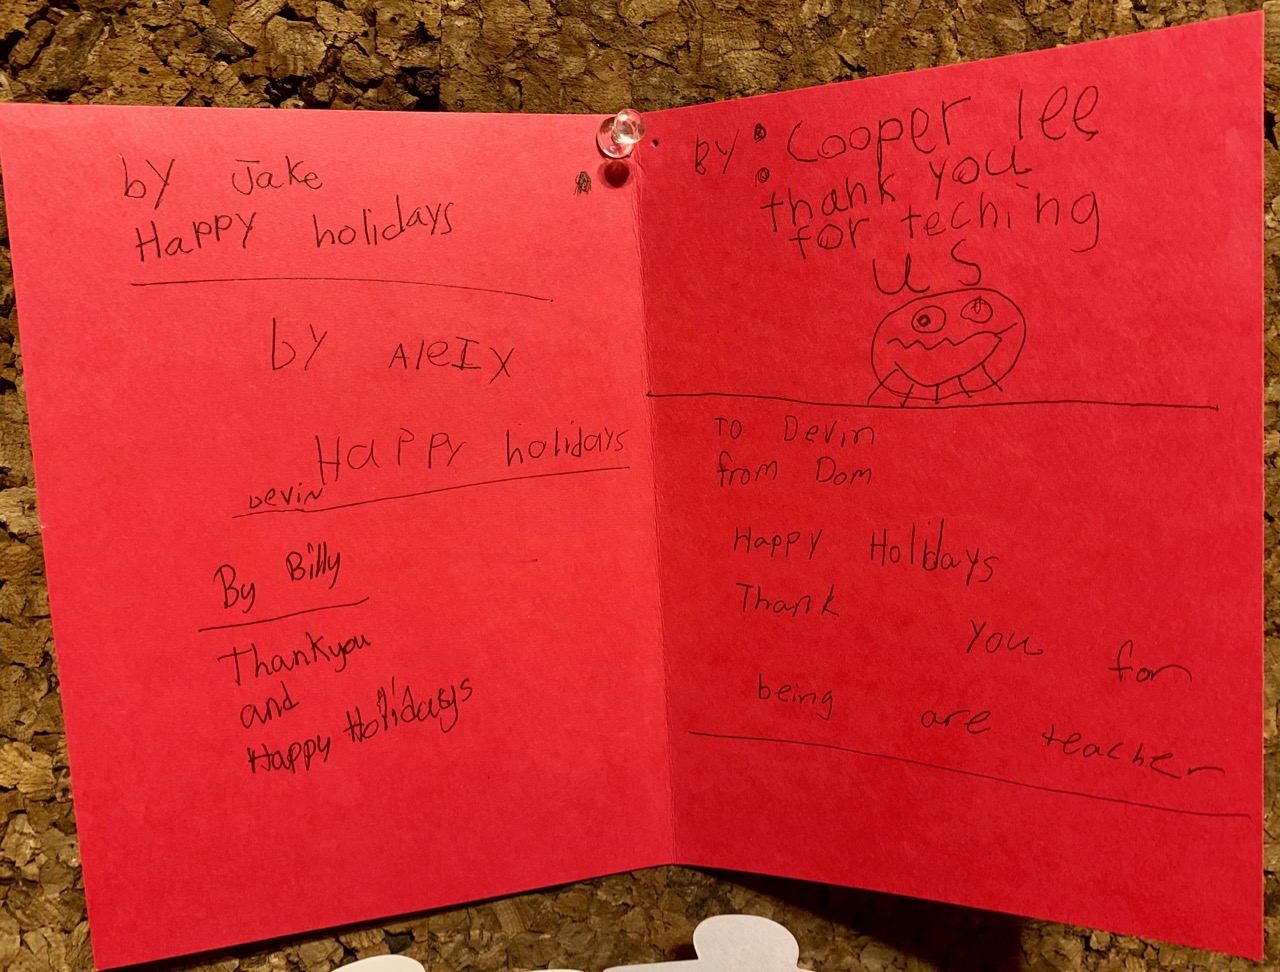 by Jake
Happy holidays
by AleIx
Happy holidays
Devin
By Billy
Thankyou
and
Happy Holidays
By: Cooper lee
thank you
for teching
us
To Devin
from Dom
Happy Holidays
Thank you for
being are teacher